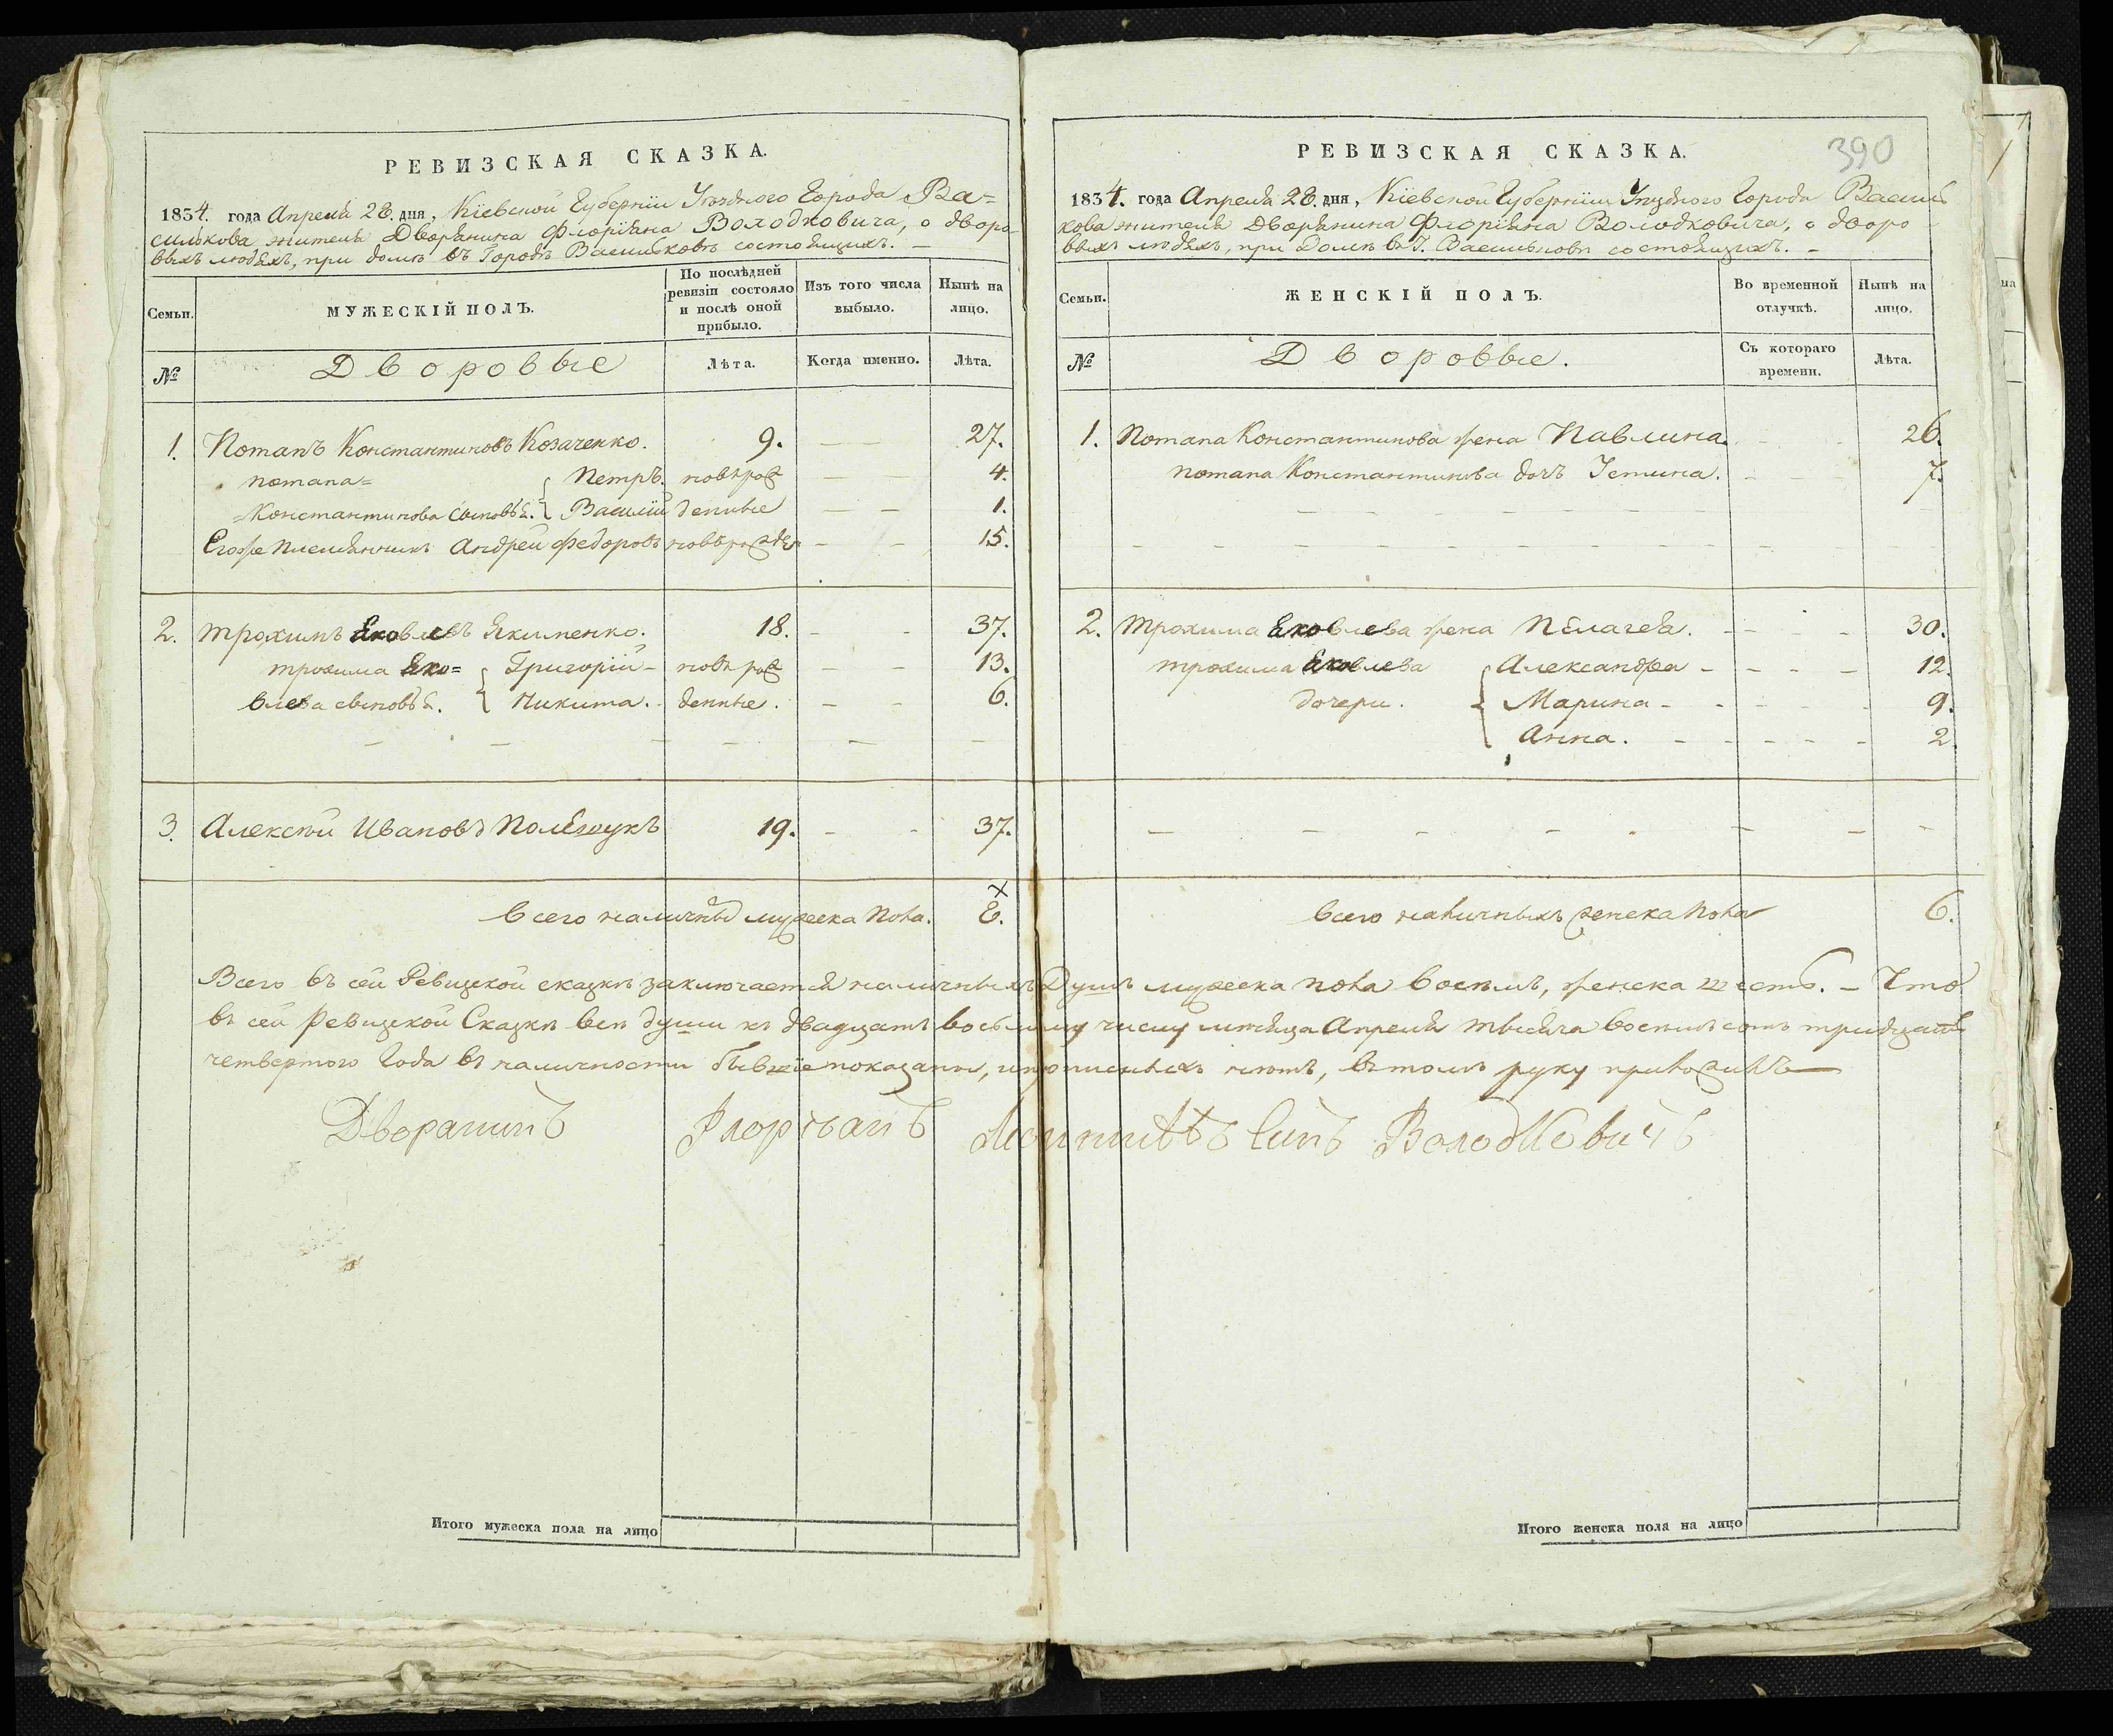 РЕВИЗСКАЯ СКАЗКА.
1834. года Апреля 28. дня, Кіевской Губерніи Уѣзднаго Города Ва=
силькова жителя Дворянина Флоріяна Володковича, о дворо
выхъ людяхъ, при домѣ въ Городѣ Васильковѣ состоящихъ. —
Семьи.
МУЖЕСКІЙ ПОЛЪ.
По послѣдней ревизіи состояло и послѣ оной прибыло.
Изъ того числа выбыло.
Нынѣ на лицо.
№
Дворовые
Лѣта.
Когда именно.
Лѣта.
1. Потапъ Константиновъ Козаченко. 9. — — 27.
Потапа= { Петръ. новорож — — 4.
=Константинова сыновья. { Василій денные — — 1.
Егоже племянникъ Андрей Федоровъ новорожден — — 15.
2. Трохимъ Яковлевъ Якименко. 18. — — 37.
Трохима Яко= { Григорій — новорож — — 13.
влева сыновья. { Никита. денные. — — 6.
3. Алексѣй Ивановъ Полѣщукъ 19. — — 37.
Всего наличныхъ мужеска пола. 8.
Итого мужеска пола на лицо
РЕВИЗСКАЯ СКАЗКА.
390
1834. года Апреля 28. дня, Кіевской Губерніи Уѣзднаго Города Василь
кова жителя Дворянина Флоріяна Володковича, о дворо
выхъ людяхъ, при Домѣ в Г. Васильковѣ состоящихъ. —
Семьи.
ЖЕНСКІЙ ПОЛЪ.
Во временной отлучкѣ.
Нынѣ на лицо.
№
Дворовые.
Съ котораго времени.
Лѣта.
1. Потапа Константинова жена Павлина. 26.
Потапа Константинова дочь Устина. 7.
2. Трохима Яковлева жена Пелагея. 30.
Трохима Яковлева { Александра 12.
дочери. { Марина 9.
Анна. 2.
Всего наличныхъ женска пола 6.
Всего въ сей Ревизской сказкѣ заключается наличныхъ Душъ мужеска пола восемь, женска шесть. — Что
въ сей Ревизской Сказкѣ всѣ души къ двадцать восьмому числу мѣсяца Апреля тысяча восемьсотъ тридцать
четвертого Года въ наличности бывшіе показаны, и прописныхъ нѣтъ, въ томъ руку приложилъ
Дворанинъ Флоріанъ Сынъ Володковичъ
Итого женска пола на лицо